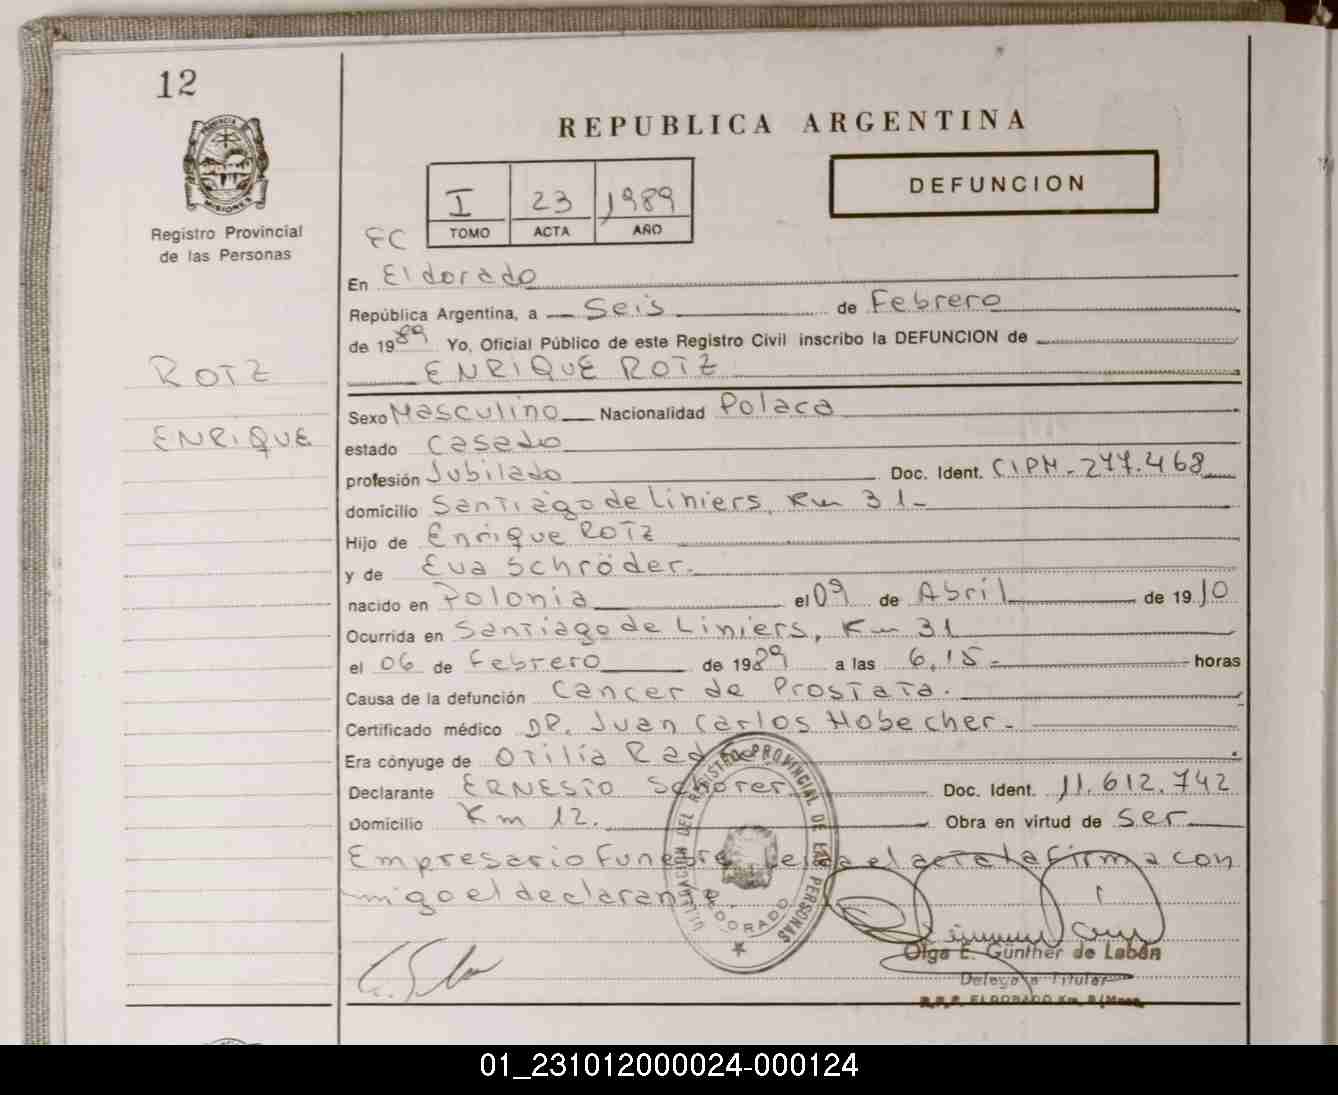 12
PROVINCIA DE
MISIONES
Registro Provincial
de las Personas
ROTZ
ENRIQUE
REPUBLICA ARGENTINA
I 23 1989
TOMO ACTA AÑO
DEFUNCION
FC
En Eldorado
República Argentina, a Seis de Febrero
de 1989 Yo, Oficial Público de este Registro Civil inscribo la DEFUNCION de
ENRIQUE ROTZ
Sexo Masculino Nacionalidad Polaca
estado Casado
profesión Jubilado Doc. Ident. CIPM-277.468
domicilio Santiago de Liniers, Km 31-
Hijo de Enrique ROTZ
y de Eva Schröder.
nacido en Polonia el 09 de Abril de 1910
Ocurrida en Santiago de Liniers, Km 31
el 06 de Febrero de 1989 a las 6,15- horas
Causa de la defunción Cancer de Prostata.
Certificado médico DR. Juan Carlos Hobecher-
Era cónyuge de Otilia
Declarante ERNESTO Schorer Doc. Ident. 11.612.742
Domicilio Km 12. Obra en virtud de ser
Empresario Funebre el acta la firma con
migo el declarante.
DELEGACIÓN DEL REGISTRO PROVINCIAL DE LAS PERSONAS
ELDORADO
Olga E. Günther de Labán
Delegada Titular
R.P.P. ELDORADO Km. 9/Mnes.
01_231012000024-000124